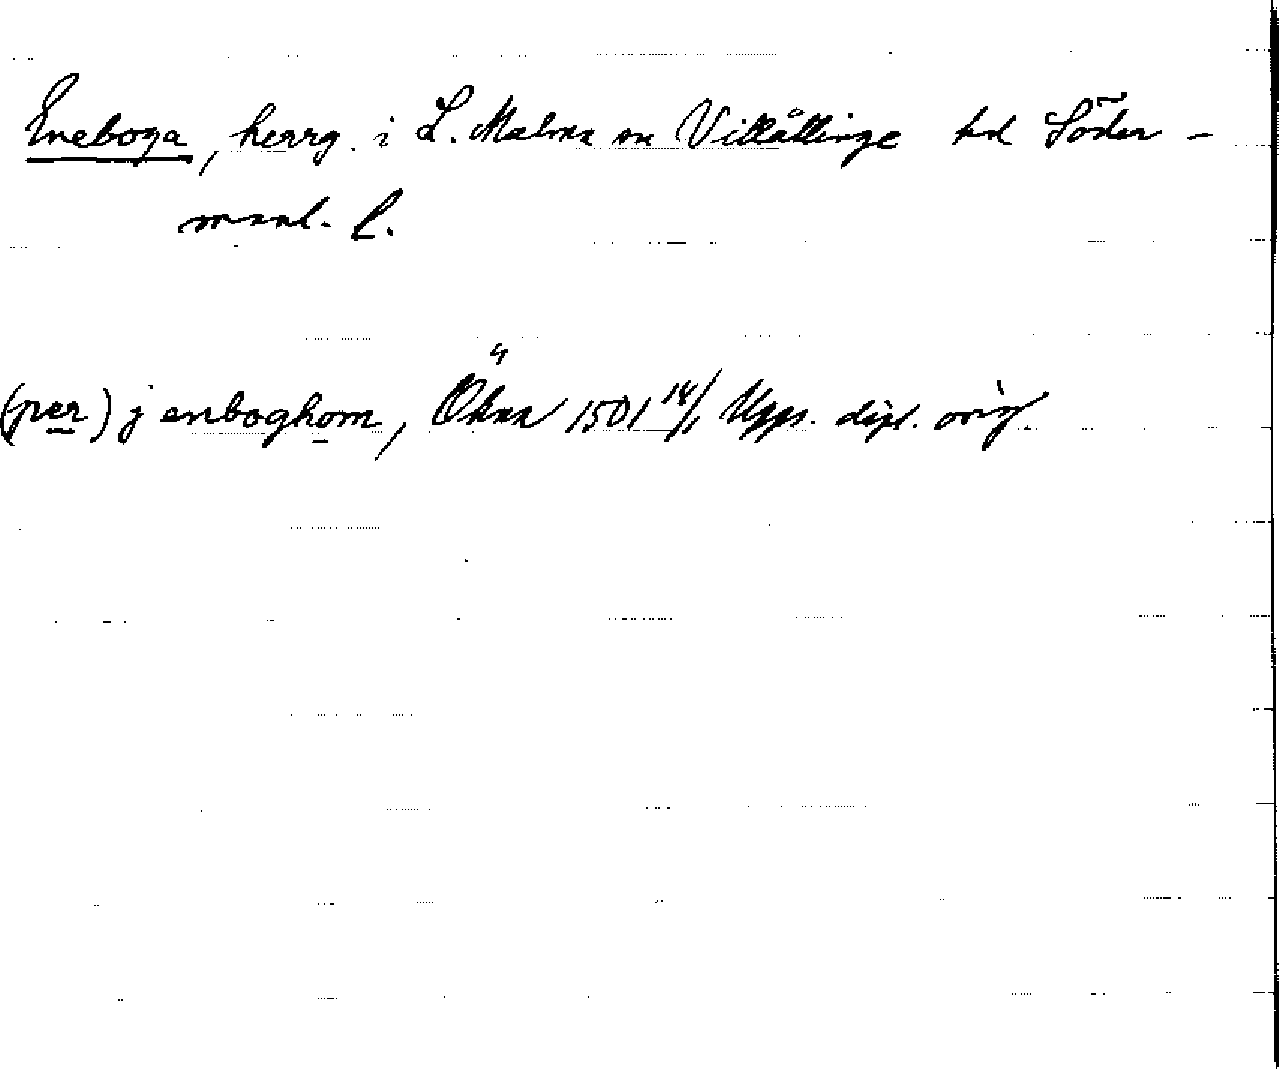 Eneboga, herrg. i L. Malma sn Villåttinge hd Söder-
manl. l.
(per) j enboghom, Ökna 1501 14/1 Upps. dipl. orig.